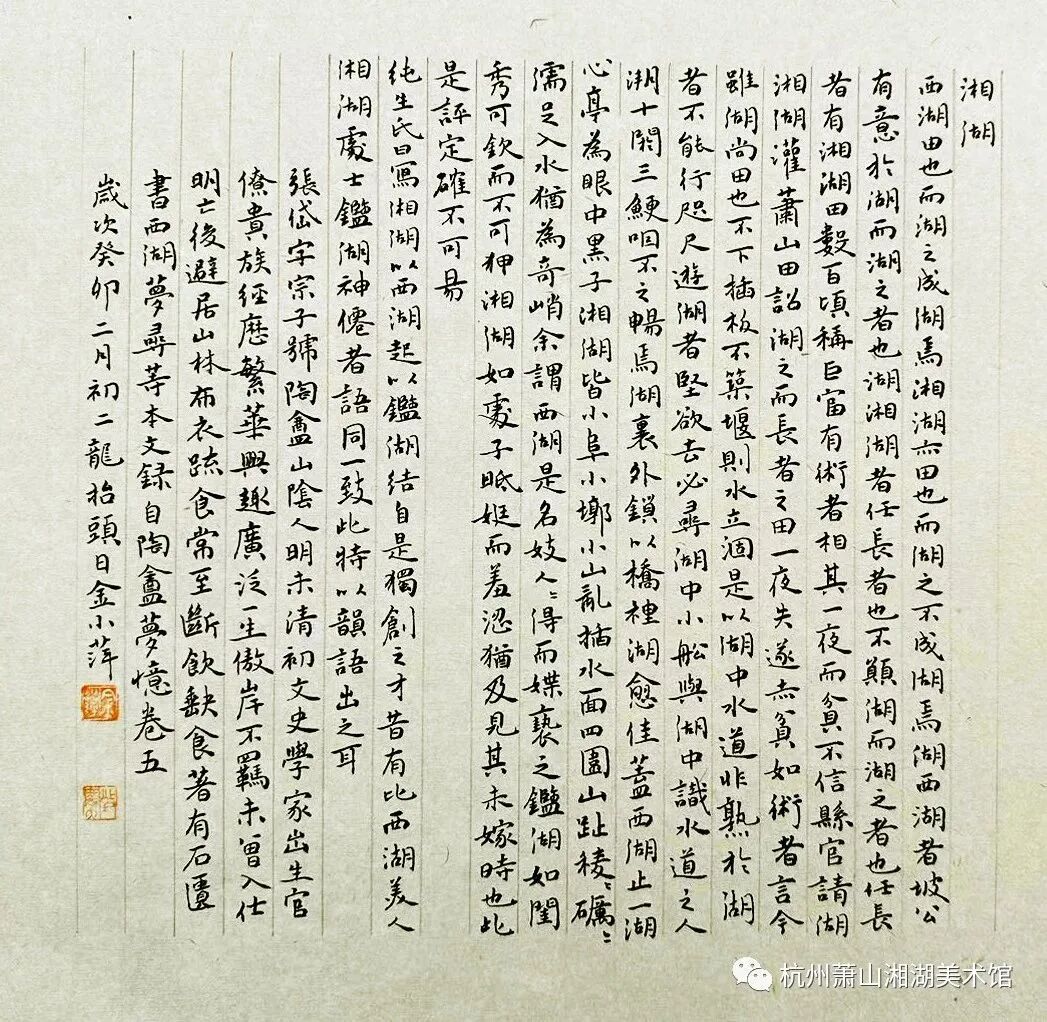 湘湖
西湖田也而湖之成湖焉湘湖亦田也而湖之不成湖焉湖西湖者坡公
有意於湖而湖之者也湖湘湖者任長者也不願湖而湖之者也任長
者有湘湖田數百頃稱巨富有術者相其一夜而貧不信縣官請湖
湘湖灌蕭山田詔湖之而長者之田一夜失遂赤貧如術者言今
雖湖尚田也不下插板不築堰則水立涸是以湖中水道非熟於湖
者不能行咫尺遊湖者堅欲去必尋湖中小船與湖中識水道之人
溯十閼三鯁咽不之暢焉湖裏外鎖以橋裡湖愈佳蓋西湖止一湖
心亭為眼中黑子湘湖皆小阜小墩小山亂插水面四圍山趾稜〻礪〻
濡足入水猶為奇峭余謂西湖是名妓人〻得而媟褻之鑑湖如閨
秀可欽而不可狎湘湖如處子眡娗而羞澀猶及見其未嫁時也此
是評定確不可易
純生氏曰寫湘湖以西湖起以鑑湖結自是獨創之才昔有比西湖美人
湘湖處士鑑湖神僊者語同一致此特以韻語出之耳
張岱字宗子號陶盦山陰人明末清初文史學家出生官
僚貴族經歷繁華興趣廣泛一生傲岸不羈未曾入仕
明亡後避居山林布衣疏食常至斷飲缺食著有石匱
書西湖夢尋等本文録自陶盦夢憶卷五
歲次癸卯二月初二龍抬頭日金小萍
杭州萧山湘湖美术馆